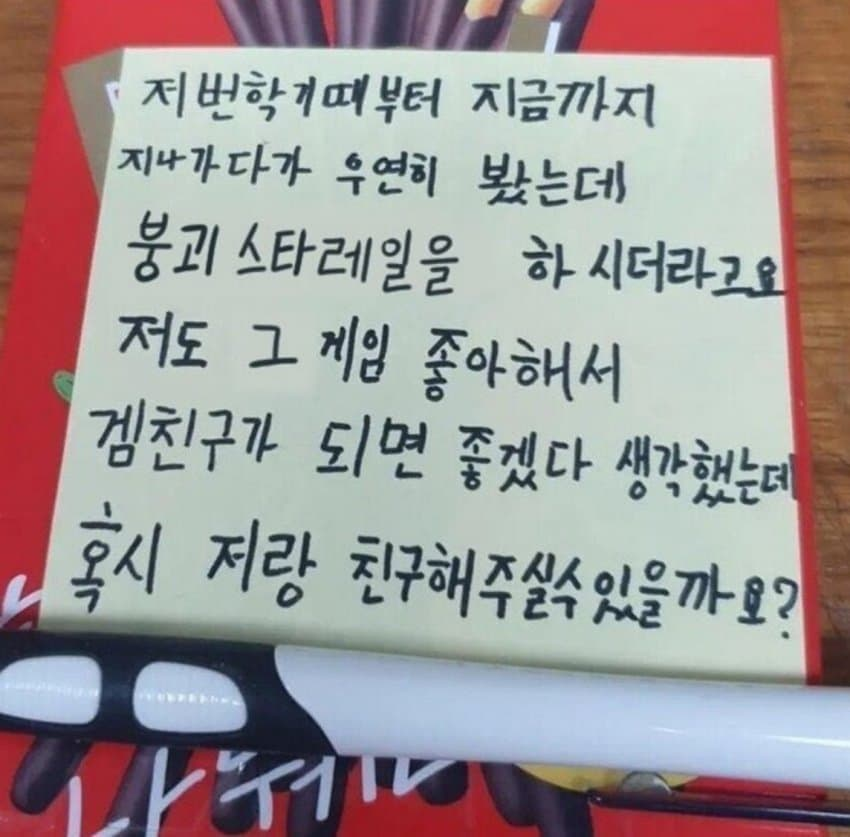 저번학기때부터 지금까지
지나가다가 우연히 봤는데
붕괴 스타레일을 하시더라고요
저도 그 게임 좋아해서
겜친구가 되면 좋겠다 생각했는데
혹시 저랑 친구해주실수있을까요?